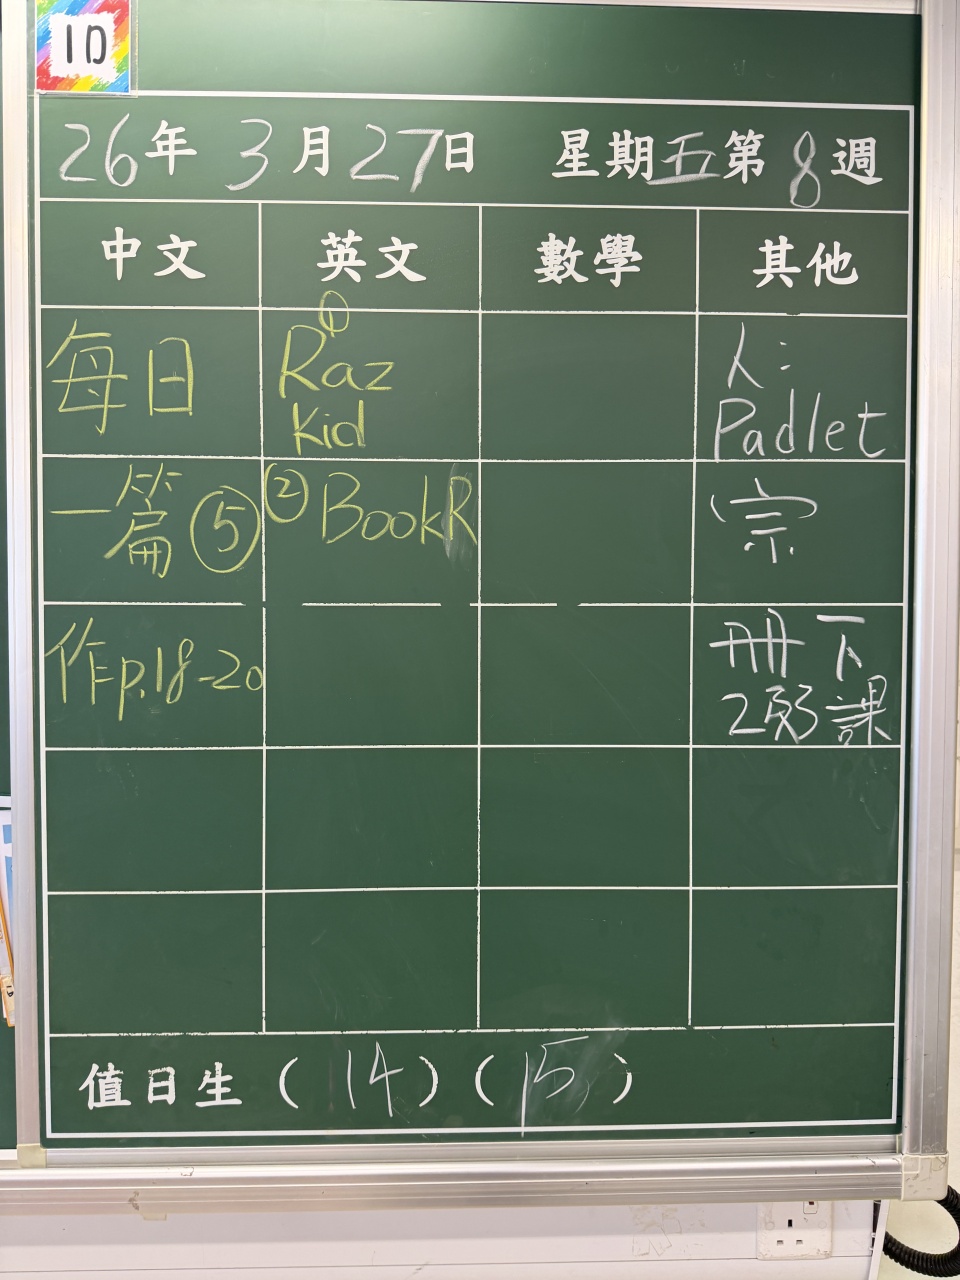 1D
26年 3月27日 星期五第8週
中文 英文 數學 其他
每日
一篇⑤
作p.18-20
① Raz
Kid
② BookR
人:
Padlet
宗
冊下
課
值日生 ( 14 ) ( 15 )